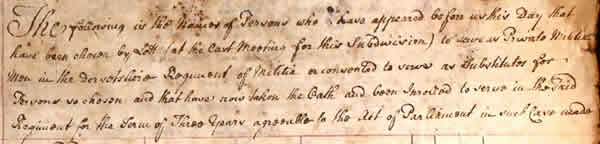 The following is the Names of Persons who have appeared before us this Day that
have been chosen by Lott (at the last Meeting for this Subdivision) to serve as Private Militia
Men in the Dorsetshire Regiment of Militia or consented to serve as Substitutes for
Persons so chosen and that have now taken the Oath and been Inroled to serve in the said
Regiment for the Term of Three Years agreeable to the Act of Parliament in such Case made